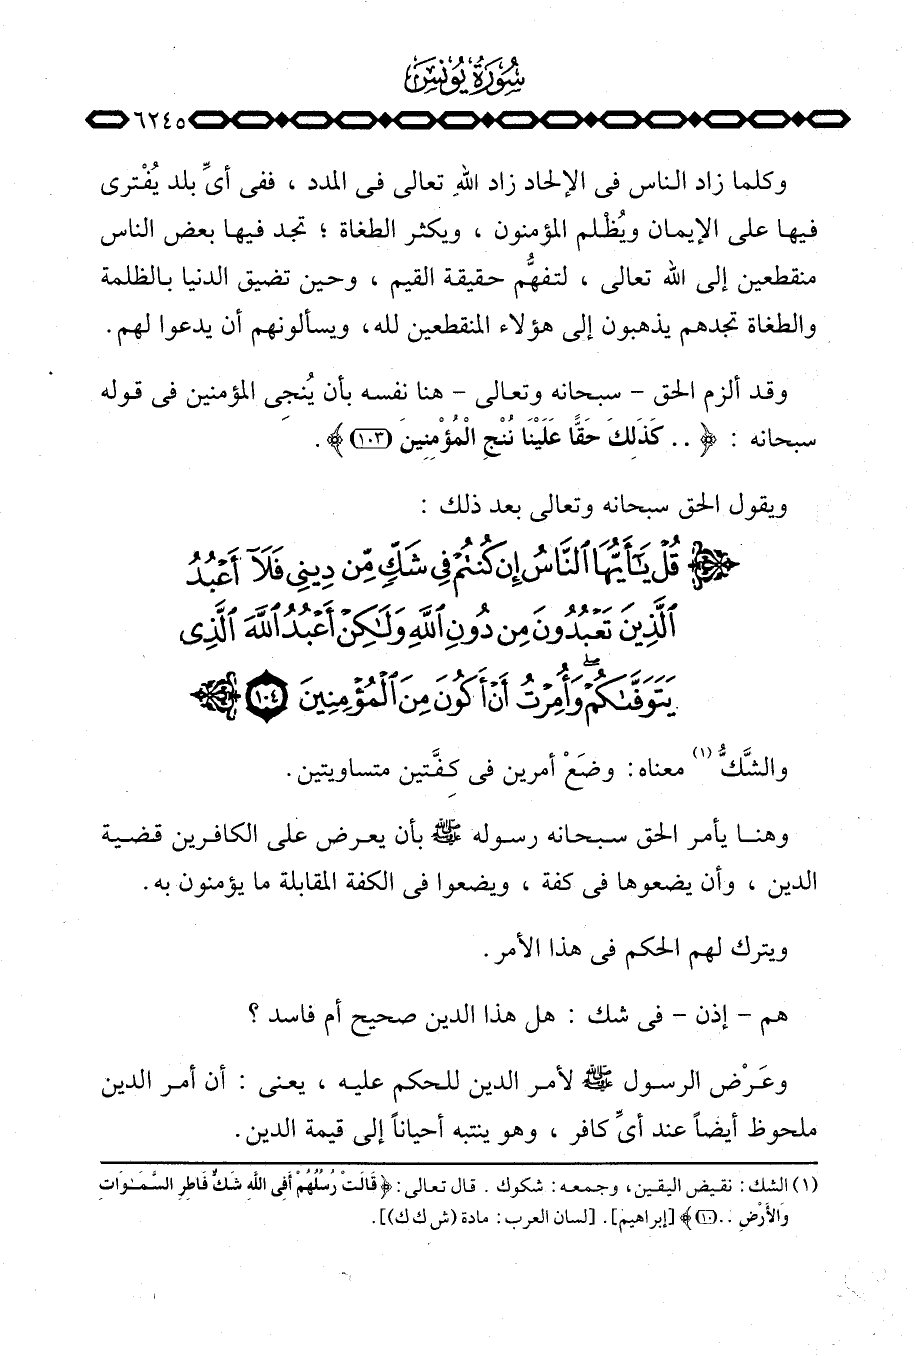 سُورَةُ يُونُسَ
٦٢٤٥
وكلما زاد الناس فى الإلحاد زاد اللهِ تعالى فى المدد ، ففى أىِّ بلد يُفْترى
فيها على الإيمان ويُظْلم المؤمنون ، ويكثر الطغاة ؛ تجد فيها بعض الناس
منقطعين إلى الله تعالى ، لتفهُّم حقيقة القيم ، وحين تضيق الدنيا بالظلمة
والطغاة تجدهم يذهبون إلى هؤلاء المنقطعين لله، ويسألونهم أن يدعوا لهم.
وقد ألزم الحق – سبحانه وتعالى – هنا نفسه بأن يُنجِى المؤمنين فى قوله
سبحانه : ﴿ .. كَذَٰلِكَ حَقًّا عَلَيْنَا نُنْجِ الْمُؤْمِنِينَ (١٠٣) ﴾ .
ويقول الحق سبحانه وتعالى بعد ذلك :
﴿ قُلْ يَٰٓأَيُّهَا ٱلنَّاسُ إِن كُنتُمْ فِى شَكٍّ مِّن دِينِى فَلَآ أَعْبُدُ
ٱلَّذِينَ تَعْبُدُونَ مِن دُونِ ٱللَّهِ وَلَٰكِنْ أَعْبُدُ ٱللَّهَ ٱلَّذِى
يَتَوَفَّىٰكُمْ ۖ وَأُمِرْتُ أَنْ أَكُونَ مِنَ ٱلْمُؤْمِنِينَ ١٠٤ ﴾
والشَّكُّ (١) معناه: وضَعْ أمرين فى كِفَّتين متساويتين.
وهنا يأمر الحق سبحانه رسوله ﷺ بأن يعرض على الكافرين قضية
الدين ، وأن يضعوها فى كفة ، ويضعوا فى الكفة المقابلة ما يؤمنون به.
ويترك لهم الحكم فى هذا الأمر.
هم – إذن – فى شك : هل هذا الدين صحيح أم فاسد ؟
وعَرْض الرسول ﷺ لأمر الدين للحكم عليه ، يعنى : أن أمر الدين
ملحوظ أيضاً عند أىِّ كافر ، وهو ينتبه أحياناً إلى قيمة الدين.
(١) الشك: نقيض اليقين، وجمعه: شكوك . قال تعالى: ﴿ قَالَتْ رُسُلُهُمْ أَفِى اللَّهِ شَكٌّ فَاطِرِ السَّمَٰوَاتِ
وَالأَرْضِ ..(١٠)﴾ [إبراهيم]. [لسان العرب: مادة (ش ك ك)].